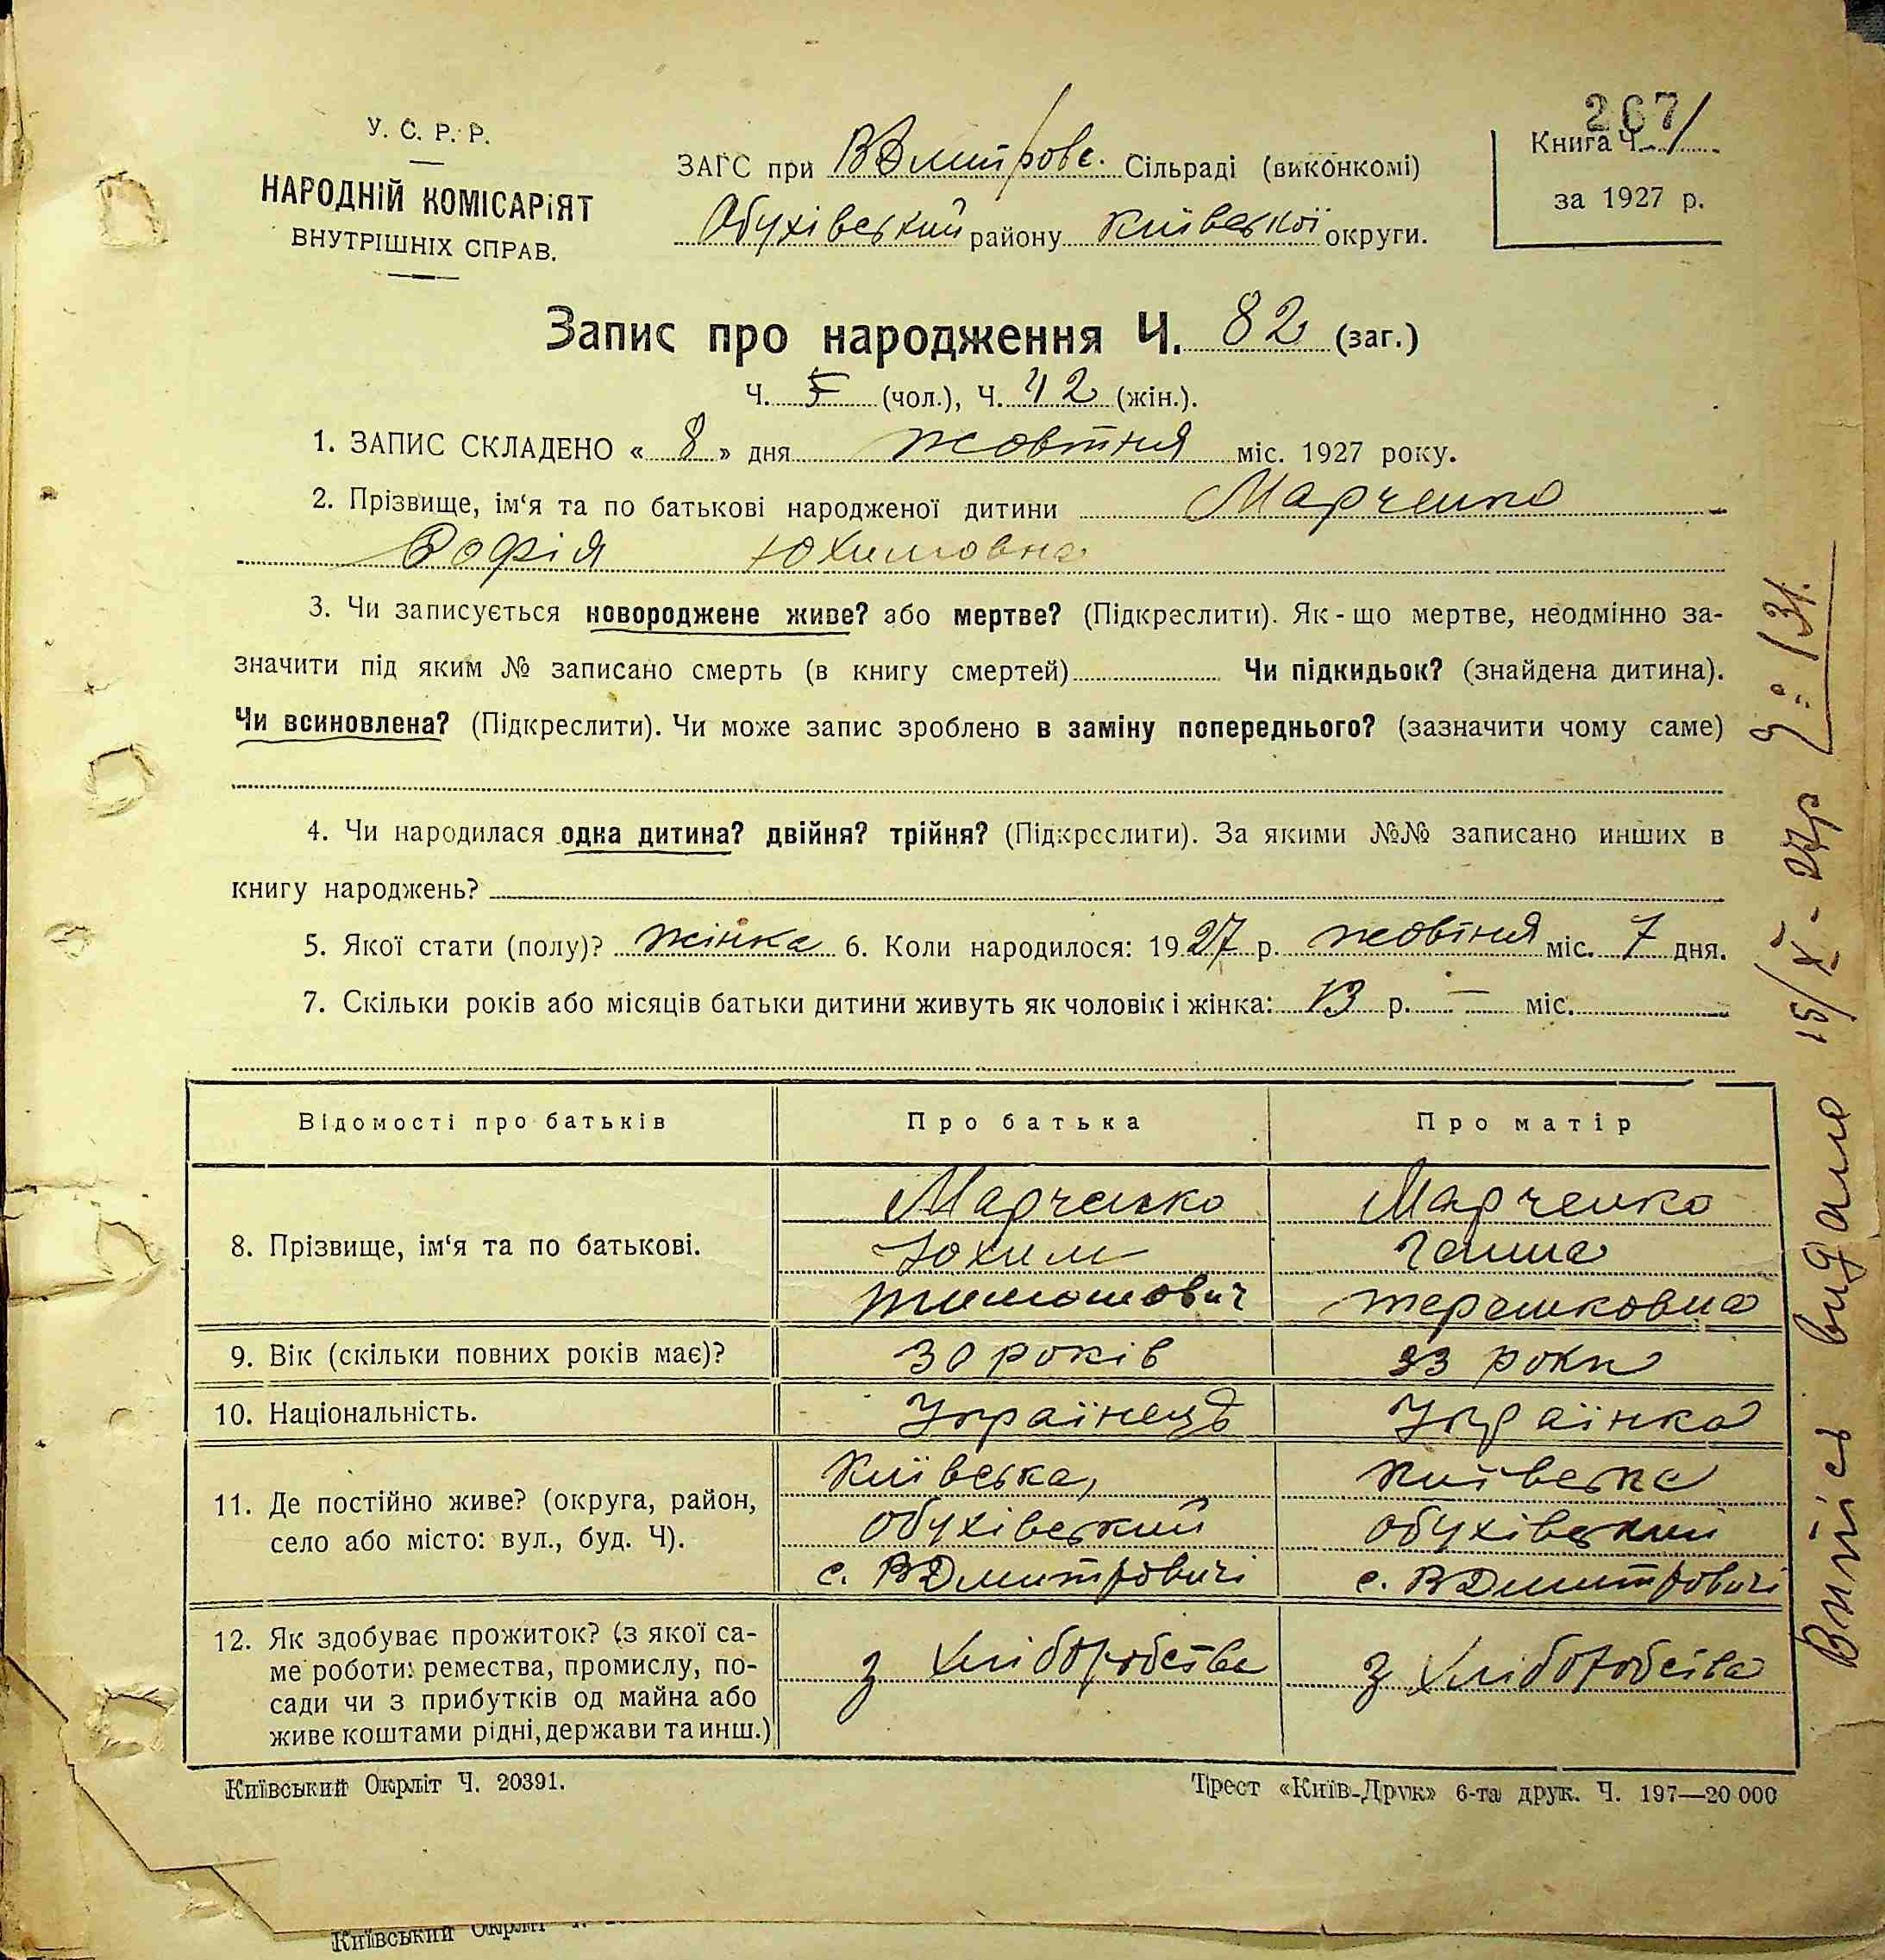 267
У. С. Р. Р.
НАРОДНІЙ КОМІСАРІЯТ
ВНУТРІШНІХ СПРАВ.
ЗАГС при ВДмитрове. Сільраді (виконкомі)
Обухівський району Київської округи.
Книга Ч. 1
за 1927 р.
Запис про народження Ч. 82 (заг.)
Ч. (чол.), Ч. 42 (жін.).
1. ЗАПИС СКЛАДЕНО « 8 » дня жовтня міс. 1927 року.
2. Прізвище, ім‘я та по батькові народженої дитини Марченко
Софія Юхимовна
3. Чи записується новороджене живе? або мертве? (Підкреслити). Як-що мертве, неодмінно за-
значити під яким № записано смерть (в книгу смертей) Чи підкидьок? (знайдена дитина).
Чи всиновлена? (Підкреслити). Чи може запис зроблено в заміну попереднього? (зазначити чому саме)
4. Чи народилася одна дитина? двійня? трійня? (Підкреслити). За якими №№ записано инших в
книгу народжень?
5. Якої стати (полу)? жінка 6. Коли народилося: 1927 р. жовтня міс. 7 дня.
7. Скільки років або місяців батьки дитини живуть як чоловік і жінка: 13 р. — міс.
Відомості про батьків Про батька Про матір
8. Прізвище, ім‘я та по батькові.
Марченко Марченко
Юхим Ганна
Тимошович Терешковна
9. Вік (скільки повних років має)? 30 років 33 роки
10. Національність. Українець Українка
11. Де постійно живе? (округа, район,
село або місто: вул., буд. Ч).
Київська, Київська
Обухівський Обухівський
с. ВДмитровичі с. ВДмитровичі
12. Як здобуває прожиток? (з якої са-
ме роботи: ремества, промислу, по-
сади чи з прибутків од майна або
живе коштами рідні, держави та инш.)
з хліборобства з хліборобства
Київський Окрліт Ч. 20391.
Трест «Київ-Друк» 6-та друк. Ч. 197—20 000
Випісь видано 15/X-27р 131.
Київський Окрліт